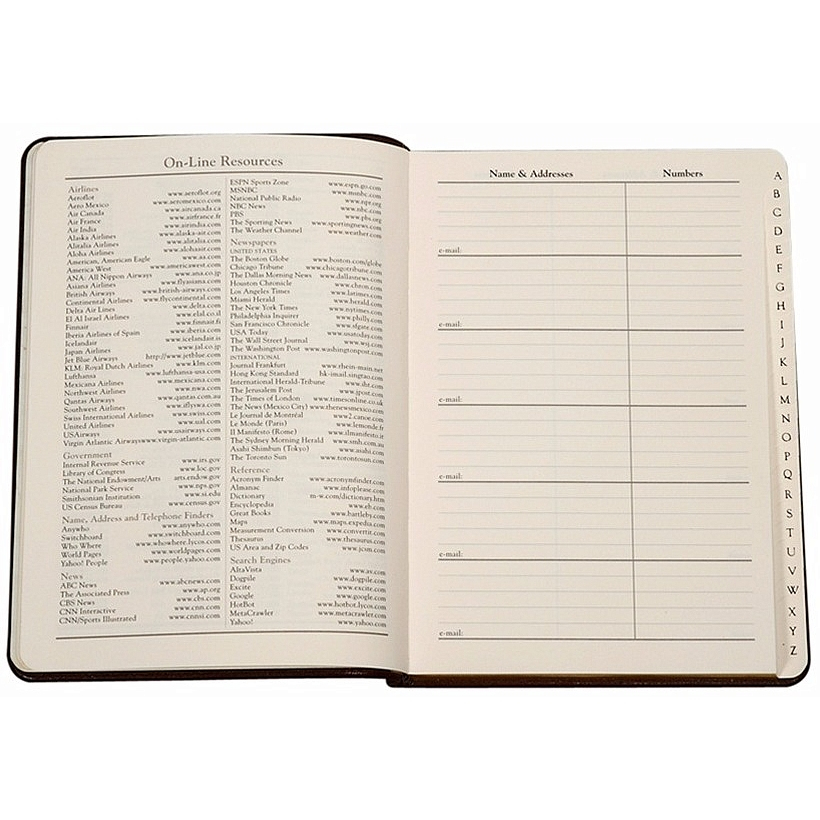 On-Line Resources
Airlines
Aeroflot www.aeroflot.org
Aero Mexico www.aeromexico.com
Air Canada www.aircanada.ca
Air France www.airfrance.fr
Air India www.airindia.com
Alaska Airlines www.alaska-air.com
Alitalia Airlines www.alitalia.com
Aloha Airlines www.alohaair.com
American, American Eagle www.aa.com
America West www.americawest.com
ANA: All Nippon Airways www.ana.co.jp
Asiana Airlines www.flyasiana.com
British Airways www.british-airways.com
Continental Airlines www.flycontinental.com
Delta Air Lines www.delta.com
El Al Israel Airlines www.elal.co.il
Finnair www.finnair.fi
Iberia Airlines of Spain www.iberia.com
Icelandair www.icelandair.is
Japan Airlines www.jal.co.jp
Jet Blue Airways http://www.jetblue.com
KLM: Royal Dutch Airlines www.klm.com
Lufthansa www.lufthansa-usa.com
Mexicana Airlines www.mexicana.com
Northwest Airlines www.nwa.com
Qantas Airways www.qantas.com.au
Southwest Airlines www.iflyswa.com
Swiss International Airlines www.swiss.com
United Airlines www.ual.com
USAirways www.usairways.com
Virgin Atlantic Airways www.virgin-atlantic.com
Government
Internal Revenue Service www.irs.gov
Library of Congress www.loc.gov
The National Endowment/Arts arts.endow.gov
National Park Service www.nps.gov
Smithsonian Institution www.si.edu
US Census Bureau www.census.gov
Name, Address and Telephone Finders
Anywho www.anywho.com
Switchboard www.switchboard.com
Who Where www.whowhere.lycos.com
World Pages www.worldpages.com
Yahoo! People www.people.yahoo.com
News
ABC News www.abcnews.com
The Associated Press www.ap.org
CBS News www.cbs.com
CNN Interactive www.cnn.com
CNN/Sports Illustrated www.cnnsi.com
ESPN Sports Zone www.espn.go.com
MSNBC www.msnbc.com
National Public Radio www.npr.org
NBC News www.nbc.com
PBS www.pbs.org
The Sporting News www.sportingnews.com
The Weather Channel www.weather.com
Newspapers
UNITED STATES
The Boston Globe www.boston.com/globe
Chicago Tribune www.chicagotribune.com
The Dallas Morning News www.dallasnews.com
Houston Chronicle www.chron.com
Los Angeles Times www.latimes.com
Miami Herald www.herald.com
The New York Times www.nytimes.com
Philadelphia Inquirer www.philly.com
San Francisco Chronicle www.sfgate.com
USA Today www.usatoday.com
The Wall Street Journal www.wsj.com
The Washington Post www.washingtonpost.com
INTERNATIONAL
Journal Frankfurt www.rhein-main.net
Hong Kong Standard hk-imail.singtao.com
International Herald-Tribune www.iht.com
The Jerusalem Post www.jpost.com
The Times of London www.timesonline.co.uk
The News (Mexico City) www.thenewsmexico.com
Le Journal de Montréal www2.canoe.com
Le Monde (Paris) www.lemonde.fr
Il Manifesto (Rome) www.ilmanifesto.it
The Sydney Morning Herald www.smh.com.au
Asahi Shimbun (Tokyo) www.asahi.com
The Toronto Sun www.torontosun.com
Reference
Acronym Finder www.acronymfinder.com
Almanac www.infoplease.com
Dictionary m-w.com/dictionary.htm
Encyclopedia www.eb.com
Great Books www.bartleby.com
Maps www.maps.expedia.com
Measurement Conversion www.convertit.com
Thesaurus www.thesaurus.com
US Area and Zip Codes www.jcsm.com
Search Engines
AltaVista www.av.com
Dogpile www.dogpile.com
Excite www.excite.com
Google www.google.com
HotBot www.hotbot.lycos.com
MetaCrawler www.metacrawler.com
Yahoo! www.yahoo.com
Name & Addresses Numbers
e-mail:
e-mail:
e-mail:
e-mail:
e-mail:
e-mail:
A
B
C
D
E
F
G
H
I
J
K
L
M
N
O
P
Q
R
S
T
U
V
W
X
Y
Z